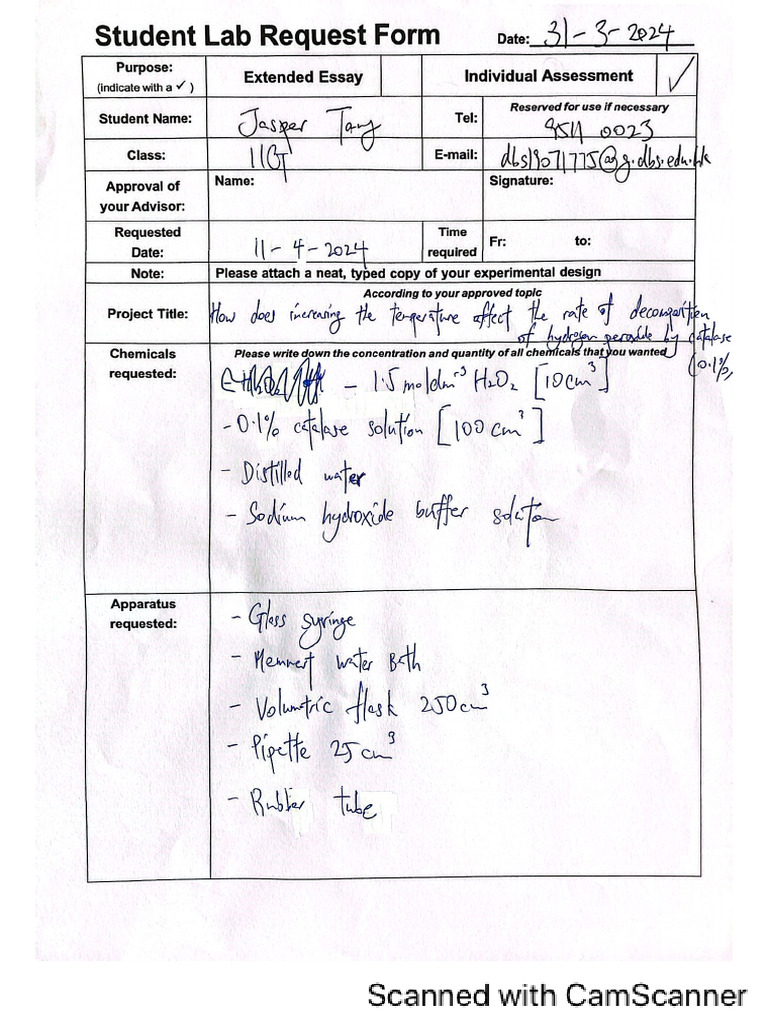 Student Lab Request Form Date: 31-3-2024
Purpose: (indicate with a ✓) Extended Essay Individual Assessment ✓
Student Name: Jasper Tang Tel: Reserved for use if necessary 0023
Class: 11G E-mail: dbs19071775@g.dbs.edu.hk
Approval of your Advisor: Name: Signature:
Requested Date: 11-4-2024 Time required Fr: to:
Note: Please attach a neat, typed copy of your experimental design
According to your approved topic
Project Title: How does increasing the temperature affect the rate of decomposition
of hydrogen peroxide by catalase
(0.1%,
Chemicals requested: Please write down the concentration and quantity of all chemicals that you wanted
- 1.5 moldm⁻³ H₂O₂ [10cm³]
- 0.1% catalase solution [100 cm³]
- Distilled water
- Sodium hydroxide buffer solution
Apparatus requested:
- Glass syringe
- Memmert water Bath
- Volumetric flask 250cm³
- Pipette 25cm³
- Rubber tube
Scanned with CamScanner